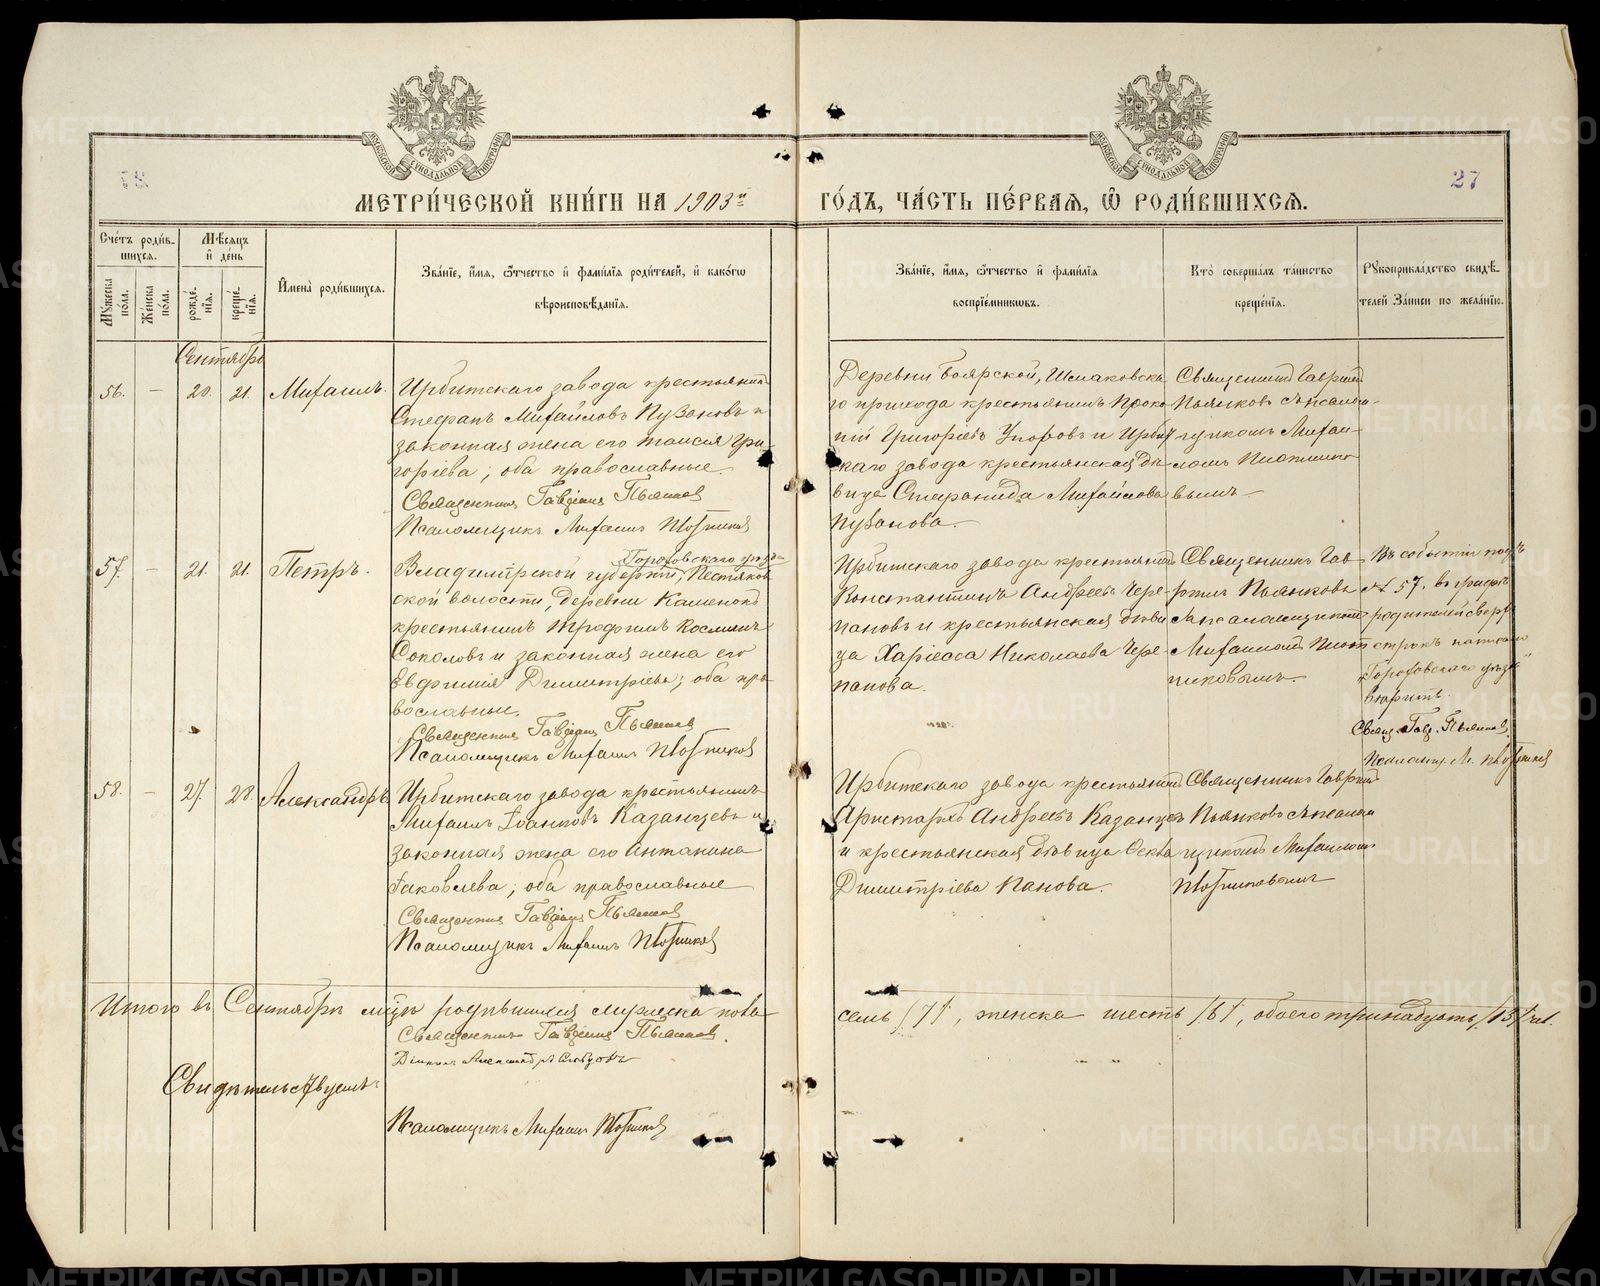 27
МЕТРИ́ЧЕСКОЙ КНИ́ГИ НА 1903й ГО́ДЪ, ЧА́СТЬ ПЕ́РВАЯ, Ѽ РОДИ́ВШИХСЯ.
Сче́тъ роди́в-
шихся.
Му́жеска по́ла.
Же́нска по́ла.
Мѣ́сяцъ
и҆ де́нь
рожде́-
нїѧ.
креще́-
нїѧ.
И҆мена̀ роди́вшихся.
Зва́нїе, и҆́мя, ѻ҆́тчество и҆ фами́лїѧ роди́телей, и҆ како́гѡ
вѣроисповѣ́данїѧ.
Зва́нїе, и҆́мя, ѻ҆́тчество и҆ фами́лїѧ
воспрїе́мниковъ.
Кто̀ соверша́лъ та́инство
креще́нїѧ.
Рꙋкоприкла́дство свидѣ́-
телей за́писи по жела́нїю.
Сентябрь
56. — 20. 21. Михаилъ.
Ирбитскаго завода крестьянинъ
Стефанъ Михайловъ Пузановъ и
законная жена его Таисія Гри-
горіева; оба православные.
Священникъ Гавріилъ Пьянковъ
Псаломщикъ Михаилъ Плотниковъ
Деревни Боярской, Шмаковска-
го прихода крестьянинъ Проко-
пій Григоріевъ Упоровъ и Ирбит-
скаго завода крестьянская дѣ-
вица Стефанида Михайлова
Пузанова.
Священникъ Гавріилъ
Пьянковъ съ псалом-
щикомъ Михаи-
ломъ Плотнико-
вымъ.
57. — 21. 21. Петръ.
Гороховскаго уѣзда
Владимірской губерніи, Пестяков-
ской волости, деревни Каменокъ
крестьянинъ Трофимъ Косминъ
Соколовъ и законная жена его
Евфимія Димитріева; оба пра-
вославные.
Священникъ Гавріилъ Пьянковъ
Псаломщикъ Михаилъ Плотниковъ
Ирбитскаго завода крестьянинъ
Константинъ Андреевъ Чере-
пановъ и крестьянская дѣви-
ца Харіесса Николаева Чере-
панова.
Священникъ Гав-
ріилъ Пьянковъ
съ псаломщикомъ
Михаиломъ Плот-
никовымъ.
Въ событіи подъ
№ 57. въ графѣ
родителей сверх
строкъ написано
"Гороховскаго уѣзда"
вѣрить.
Свящ. Гавр. Пьянковъ
Псаломщ. М. Плотниковъ
58. — 27. 28. Александръ
Ирбитскаго завода крестьянинъ
Михаилъ Іоанновъ Казанцевъ и
законная жена его Антонина
Іаковлева; оба православные
Священникъ Гавріилъ Пьянковъ
Псаломщикъ Михаилъ Плотниковъ
Ирбитскаго завода крестьянинъ
Аристархъ Андреевъ Казанцевъ
и крестьянская дѣвица Ѳекла
Димитріева Панова.
Священникъ Гавріилъ
Пьянковъ съ псалом-
щикомъ Михаиломъ
Плотниковымъ
Итого въ Сентябрѣ мцѣ родившихся мужеска пола семь /7/, женска шесть /6/, обоего тринадцать /13/ чел.
Священникъ Гавріилъ Пьянковъ.
Діаконъ Александръ
Свидѣтельствуемъ:
Псаломщикъ Михаилъ Плотниковъ
METRIKI.GASO-URAL.RU